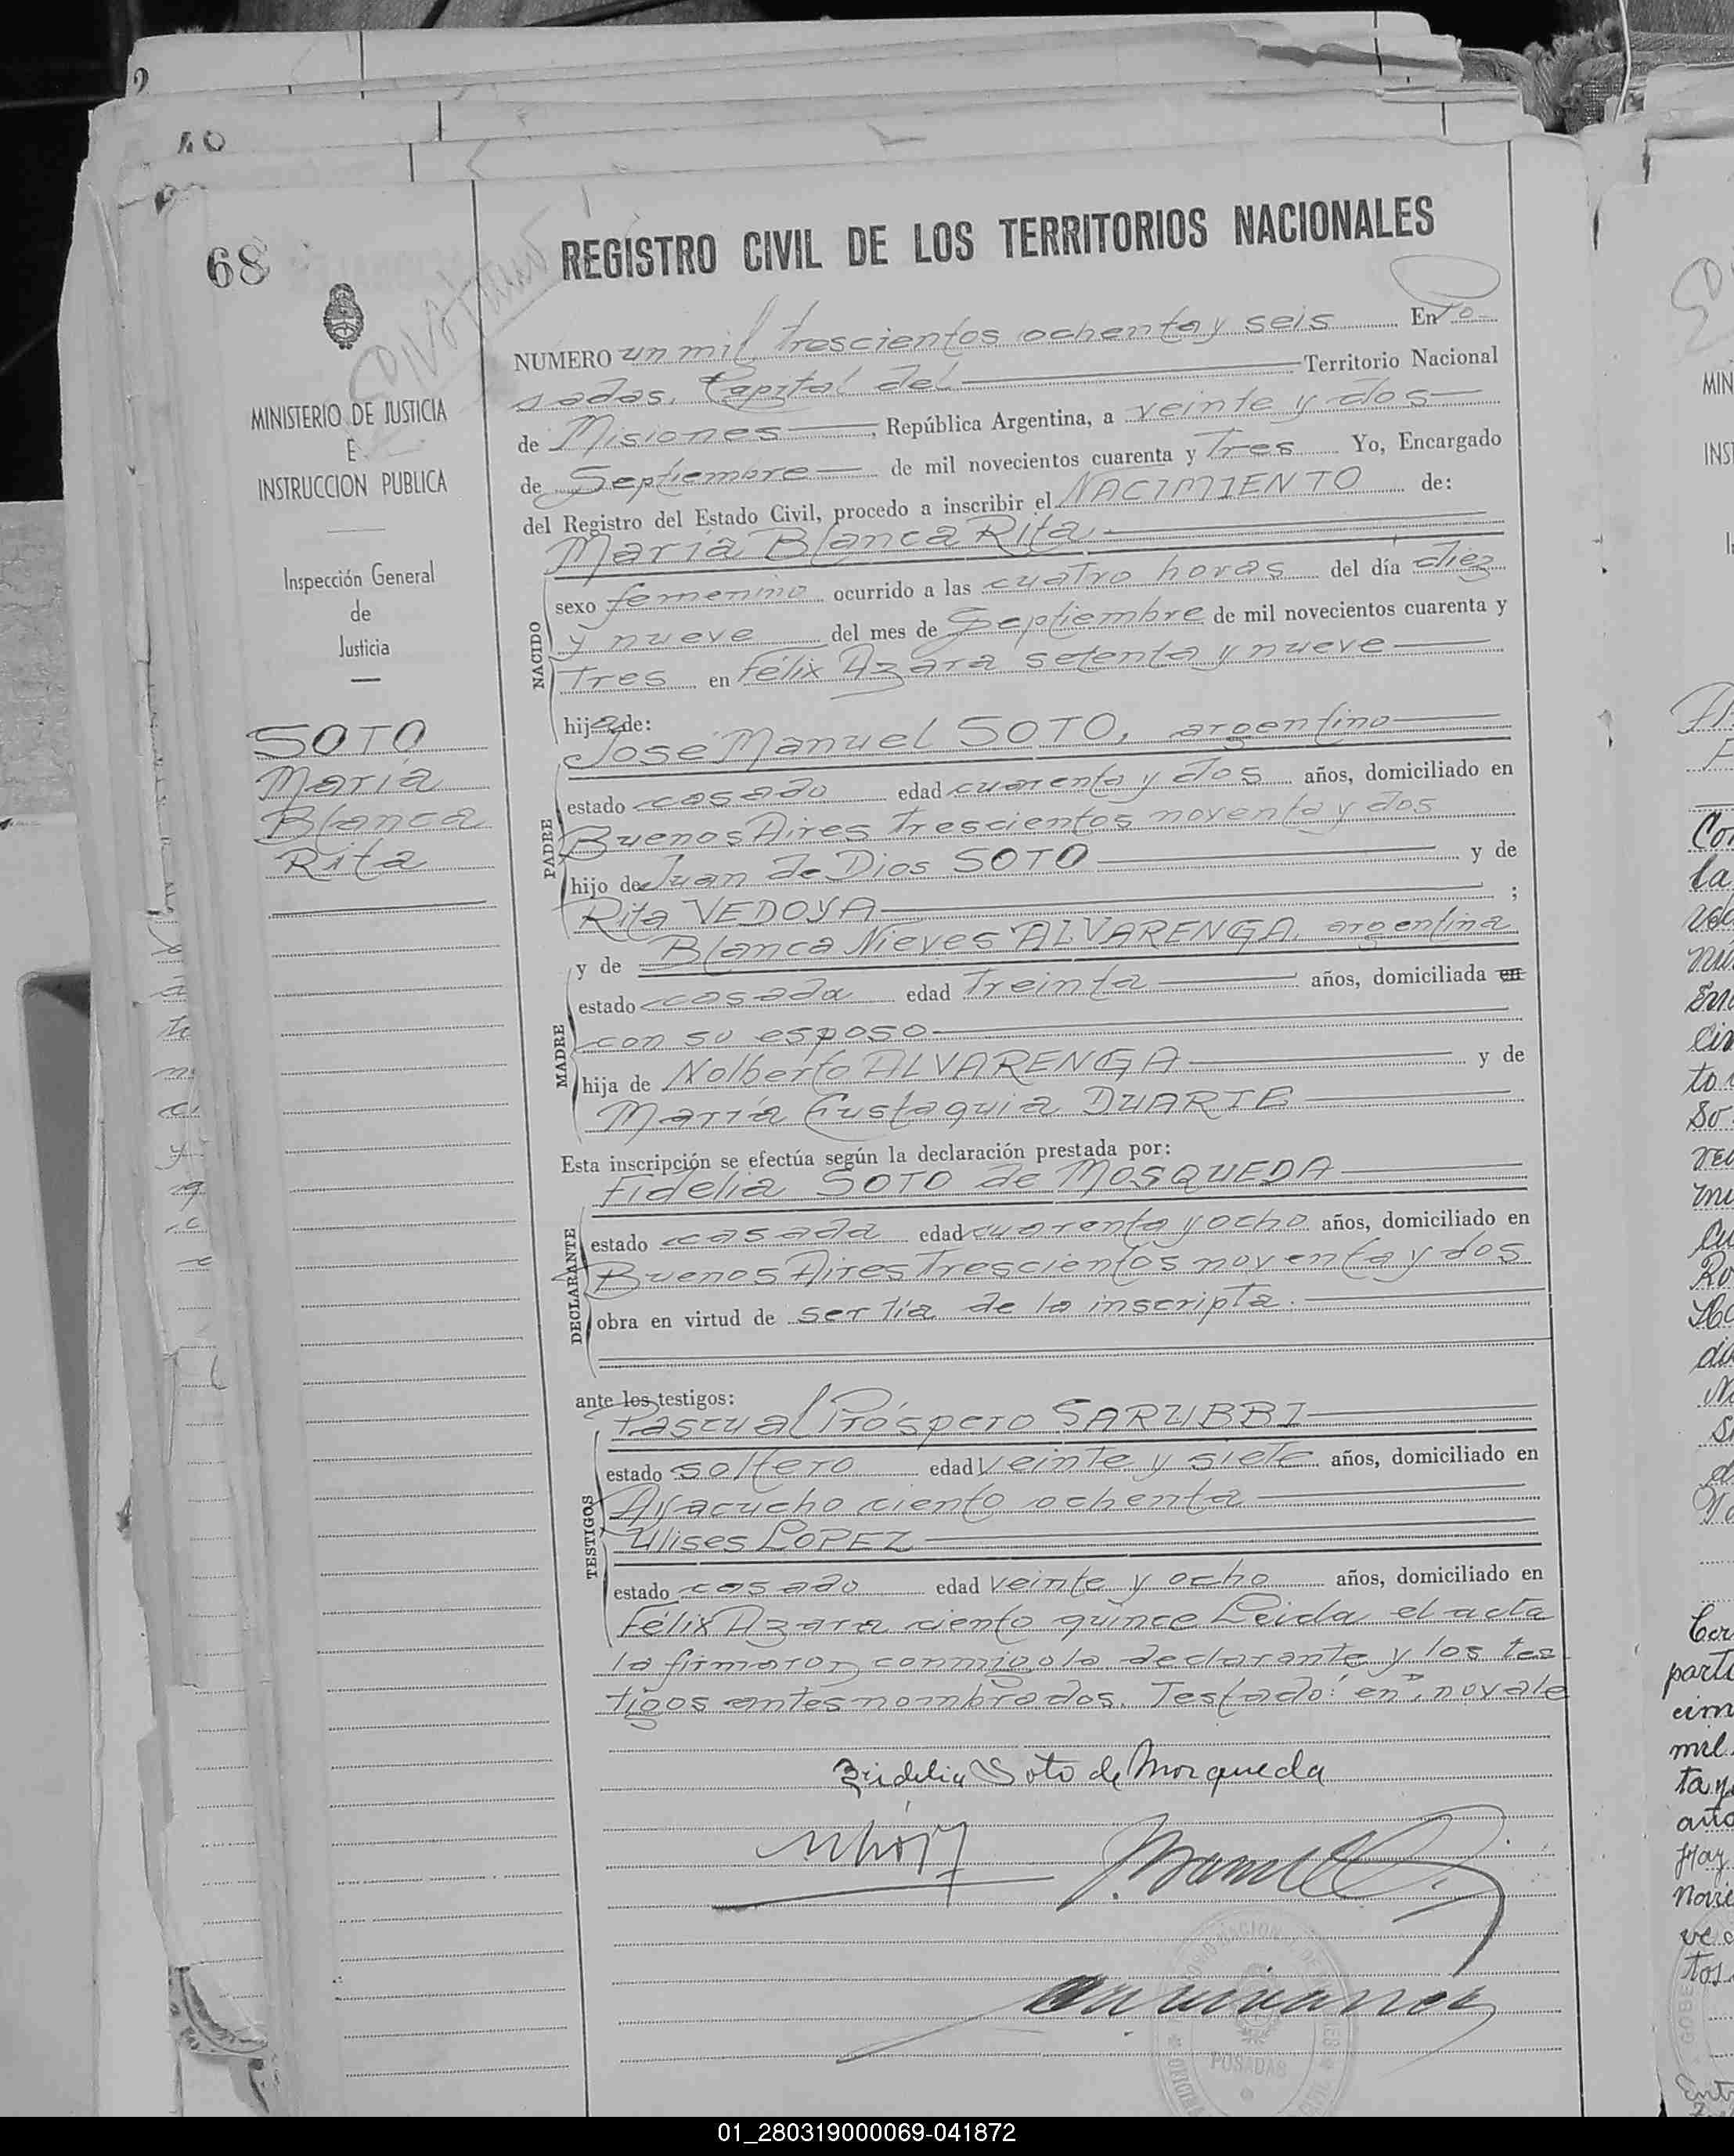 2
68
MINISTERIO DE JUSTICIA
E
INSTRUCCION PUBLICA
Inspección General
de
Justicia
SOTO
María
Blanca
Rita
REGISTRO CIVIL DE LOS TERRITORIOS NACIONALES
NUMERO un mil trescientos ochenta y seis En Po-
sadas, Capital del Territorio Nacional
de Misiones, República Argentina, a veinte y dos
de Septiembre de mil novecientos cuarenta y Tres Yo, Encargado
del Registro del Estado Civil, procedo a inscribir el NACIMIENTO de:
María Blanca Rita
NACIDO
sexo femenino ocurrido a las cuatro horas del día diez
y nueve del mes de Septiembre de mil novecientos cuarenta y
Tres en Félix Azara setenta y nueve
hija de:
José Manuel SOTO, argentino
PADRE
estado casado edad cuarenta y dos años, domiciliado en
Buenos Aires Trescientos noventa y dos
hijo de Juan de Dios SOTO y de
Rita VEDOYA ;
y de Blanca Nieves ALVARENGA, argentina
MADRE
estado casada edad Treinta años, domiciliada en
con su esposo
hija de Nolberto ALVARENGA y de
María Eustaquia DUARTE
Esta inscripción se efectúa según la declaración prestada por:
Fidelia SOTO de MOSQUEDA
DECLARANTE
estado casada edad cuarenta y ocho años, domiciliado en
Buenos Aires Trescientos noventa y dos
obra en virtud de ser tía de la inscripta.
ante los testigos:
Pascual Próspero SARUBBI
TESTIGOS
estado soltero edad veinte y siete años, domiciliado en
Ayacucho ciento ochenta
Ulises LOPEZ
estado casado edad veinte y ocho años, domiciliado en
Félix Azara ciento quince Leida el acta
la firmaron conmigo la declarante y los tes
tigos antes nombrados. Testado: "en", no vale
Fidelia Soto de Mosqueda
POSADAS
01_280319000069-041872